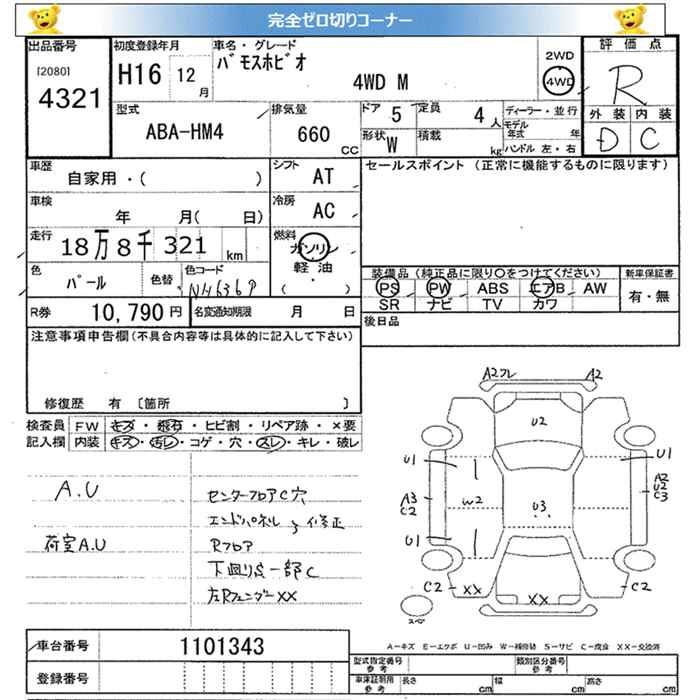 完全ゼロ切りコーナー
出品番号 初度登録年月 車名・グレード 2WD 評価点
[2080] H16 12月 バモスホビオ 4WD M 4WD R
4321
型式 排気量 ドア 5 定員 4人 ディーラー・並行 外装 内装
ABA-HM4 660 CC 形状 W 積載 kg モデル年式 年 D C
ハンドル 左・右
車歴 シフト AT セールスポイント (正常に機能するものに限ります)
自家用・( )
車検 冷房 AC
年 月( 日)
走行 18万8千321 km 燃料 ガソリン
軽油
( )
色 パール 色替 色コード NH636P 装備品(純正品に限り〇をつけてください) 新車保証書
PS PW ABS エアB AW 有・無
SR ナビ TV カワ
R券 10,790円 名変通知期限 月 日 後日品
注意事項申告欄(不具合内容等は具体的に記入して下さい)
修復歴 有 [箇所 ]
検査員 FW キズ・飛石・ヒビ割・リペア跡・×要
記入欄 内装 キズ・汚レ・コゲ・穴・スレ・キレ・破レ
A.U センターフロアC穴
エンドパネル 修正
荷室A.U Rフロア
下廻り一部C
左Rフェンダー××
A2フレ A2
U2
U1 U1
A3 C2 W2 U3 A2 U2 C3
U1
C2 XX XX C2
スペア
A-キズ E-エクボ U-凹み W-補修跡 S-サビ C-腐食 XX-交換済
車台番号 1101343
登録番号
型式指定番号 参考 類別区分番号 参考
車庫証明用 参考 長さ cm 幅 cm 高さ cm